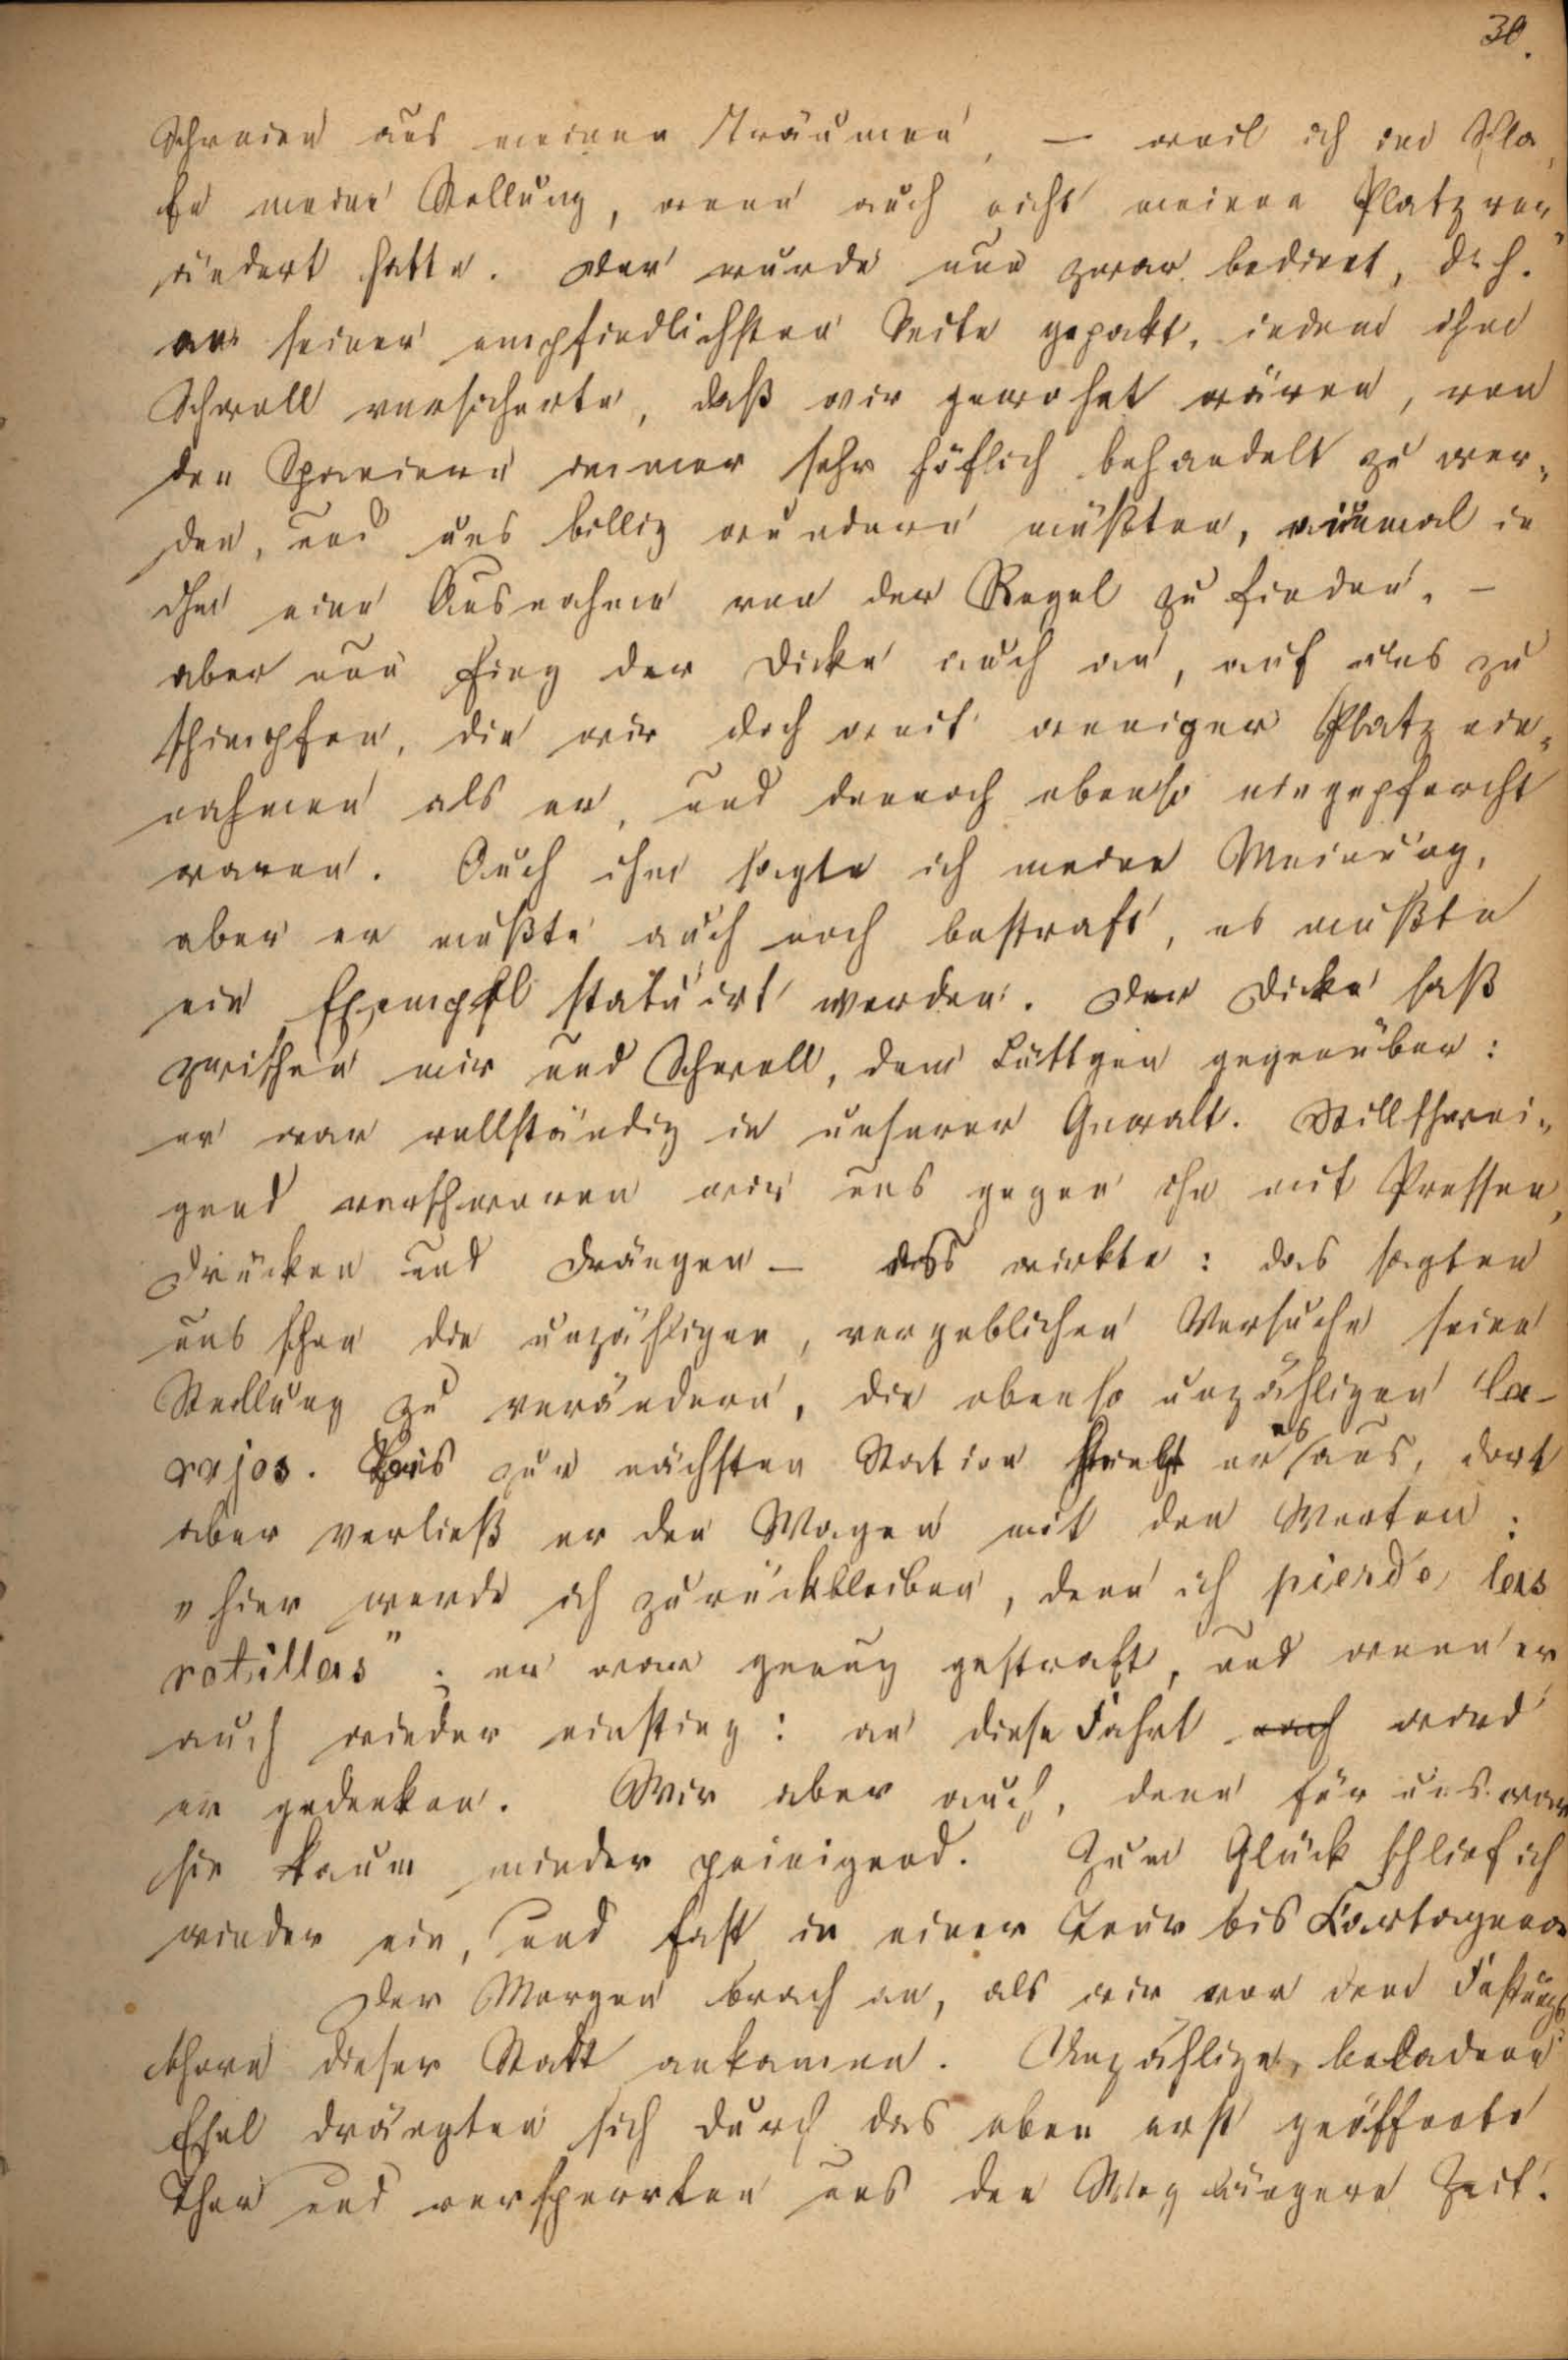 30.
Schreien aus meinen Träumen, — weil ich im Schla-
fe meine Stellung, wenn auch nicht meinen Platz ver-
ändert hatte. Der wurde nun zwar bedient, d. h.
an seiner empfindlichsten Seite gepakt, indem ihm
Schwall versicherte, daß wir gewohnt wären, von
den Spaniern immer sehr höflich behandelt zu wer-
den, und uns billig wundern müßten, einmal in
ihm eine Ausnahme von der Regel zu finden. —
aber nun fing der Dicke auch an, auf uns zu
schimpfen, die wir doch weit weniger Platz ein-
nahmen als er, und dennoch ebenso eingepfercht
waren. Auch ihm sagte ich meine Meinung,
aber er mußte auch noch bestraft, es mußte
ein Exempel statuirt werden. Der Dicke saß
zwischen mir und Schwall, dem Lüttgen gegenüber:
er war vollständig in unserer Gewalt. Stillschwei-
gend verschworen wir uns gegen ihn mit Pressen,
Drücken und Drängen — das wirkte: das sagten
uns schon die unzähligen, vergeblichen Versuche seine
Stellung zu verändern, die ebenso unzähligen Ca-
rajos. Bis zur nächsten Station hielt er es aus, dort
aber verließ er den Wagen mit den Worten:
„hier werde ich zurückbleiben, denn ich pierdo las
rotillas"; er war genug gestraft, und wenn er
auch wieder einstieg: an diese Fahrt wird
er gedenken. Wir aber auch, denn für uns war
sie kaum minder peinigend. Zum Glück schlief ich
wieder ein, und fast in einer Tour bis Kartagena
Der Morgen brach an, als wir vor dem Festungs
thore dieser Stadt ankamen. Unzählige, beladene
Esel drängten sich durch das eben erst geöffnete
Thor und versperrten uns den Weg längere Zeit.